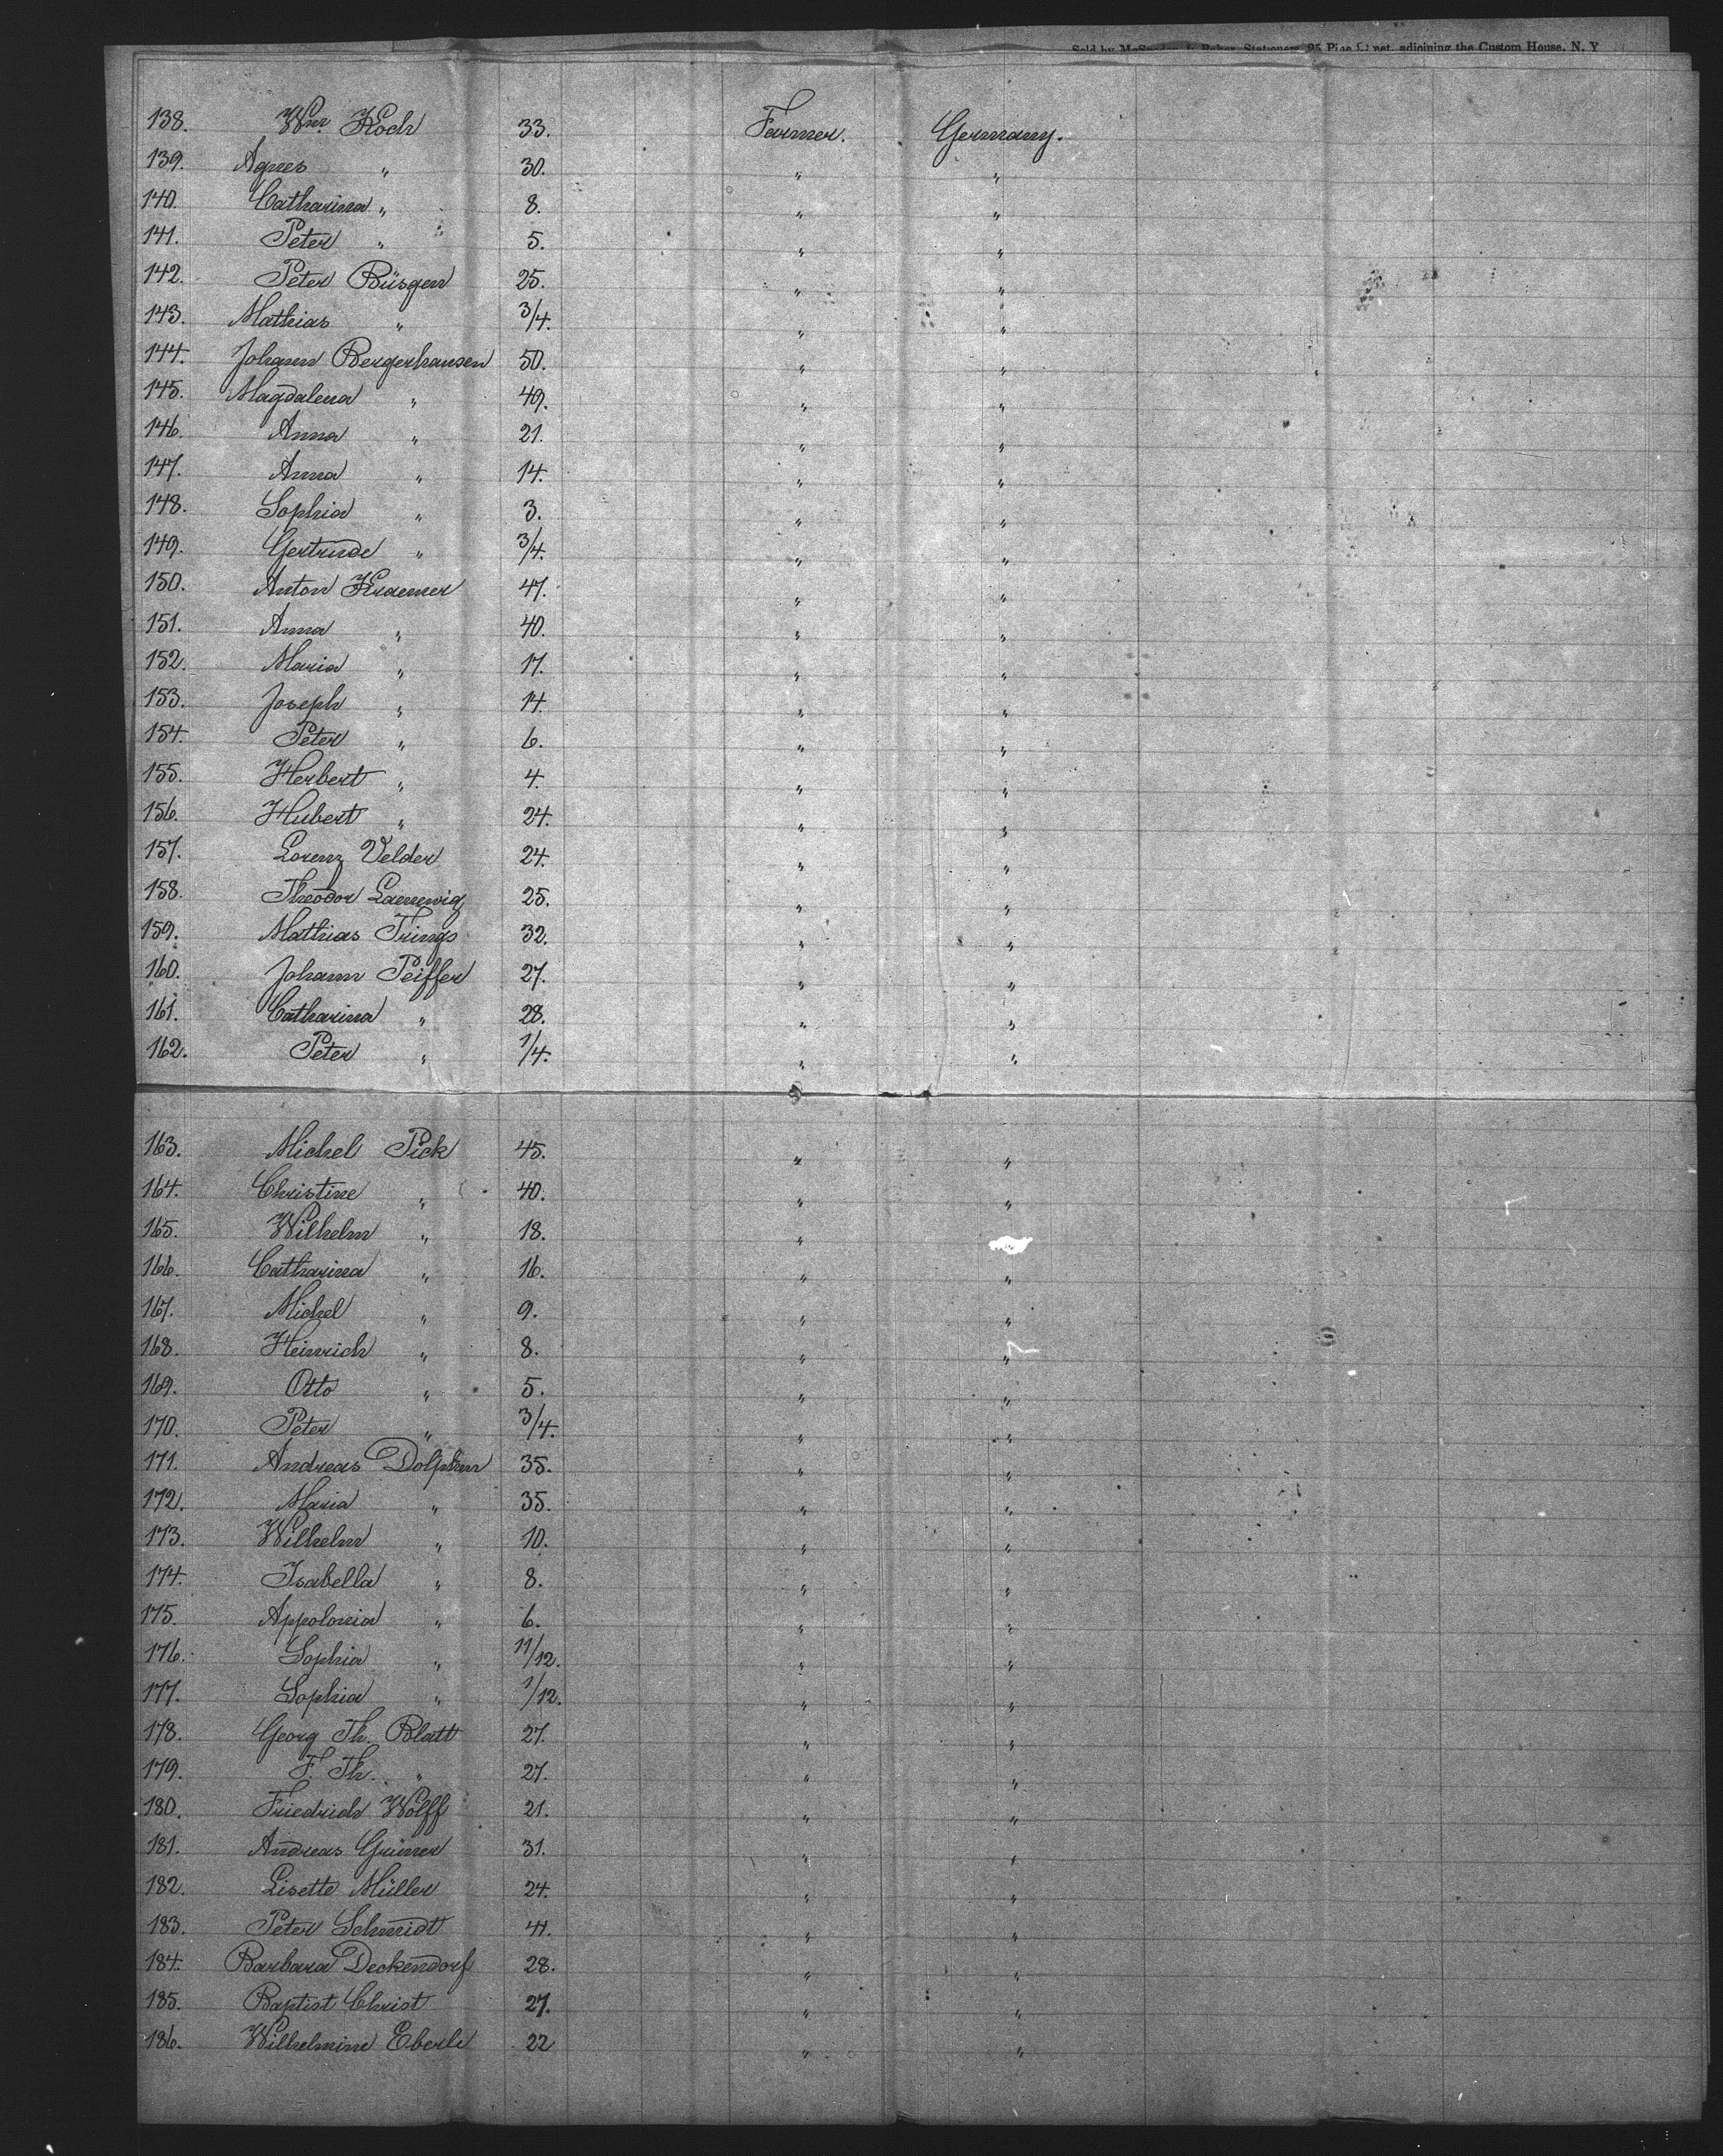 25 Pine Street, adjoining the Custom House, N. Y
138. Wm. Koch 33. Farmer. Germany.
139. Agnes " 30. " "
140. Catharina " 8. " "
141. Peter " 5. " "
142. Peter Büsgen 25. " "
143. Mathias " 3/4. " "
144. Johann Bergerhausen 50. " "
145. Magdalena " 49. " "
146. Anna " 21. " "
147. Anna " 14. " "
148. Sophia " 3. " "
149. Gertrude " 3/4. " "
150. Anton Kraemer 47. " "
151. Anna " 40. " "
152. Maria " 17. " "
153. Joseph " 14. " "
154. Peter " 6. " "
155. Herbert " 4. " "
156. Hubert " 24. " "
157. Lorenz Velder 24. " "
158. Theodor 25. " "
159. Mathias Trings 32. " "
160. Johann Peiffer 27. " "
161. Catharina " 28. " "
162. Peter " 1/4. " "
163. Michel Pick 45. " "
164. Christine " 40. " "
165. Wilhelm " 18. "
166. Catharina " 16. " "
167. Michel " 9. " "
168. Heinrich " 8. " "
169. Otto " 5. " "
170. Peter " 3/4. " "
171. Andreas Dolphen 35. " "
172. Maria " 35. " "
173. Wilhelm " 10. " "
174. Isabella " 8. " "
175. Appolonia " 6. " "
176. Sophia " 11/12. " "
177. Sophia " 1/12. " "
178. Georg Th. Blatt 27. " "
179. F. Th. " 27. " "
180. Friedrich Wolff 21. " "
181. Andreas Grüner 31. " "
182. Lisette Müller 24. " "
183. Peter Schmidt 41. " "
184. Barbara Deckendorf 28. " "
185. Baptist Christ 27. " "
186. Wilhelmine Eberle 22 " "